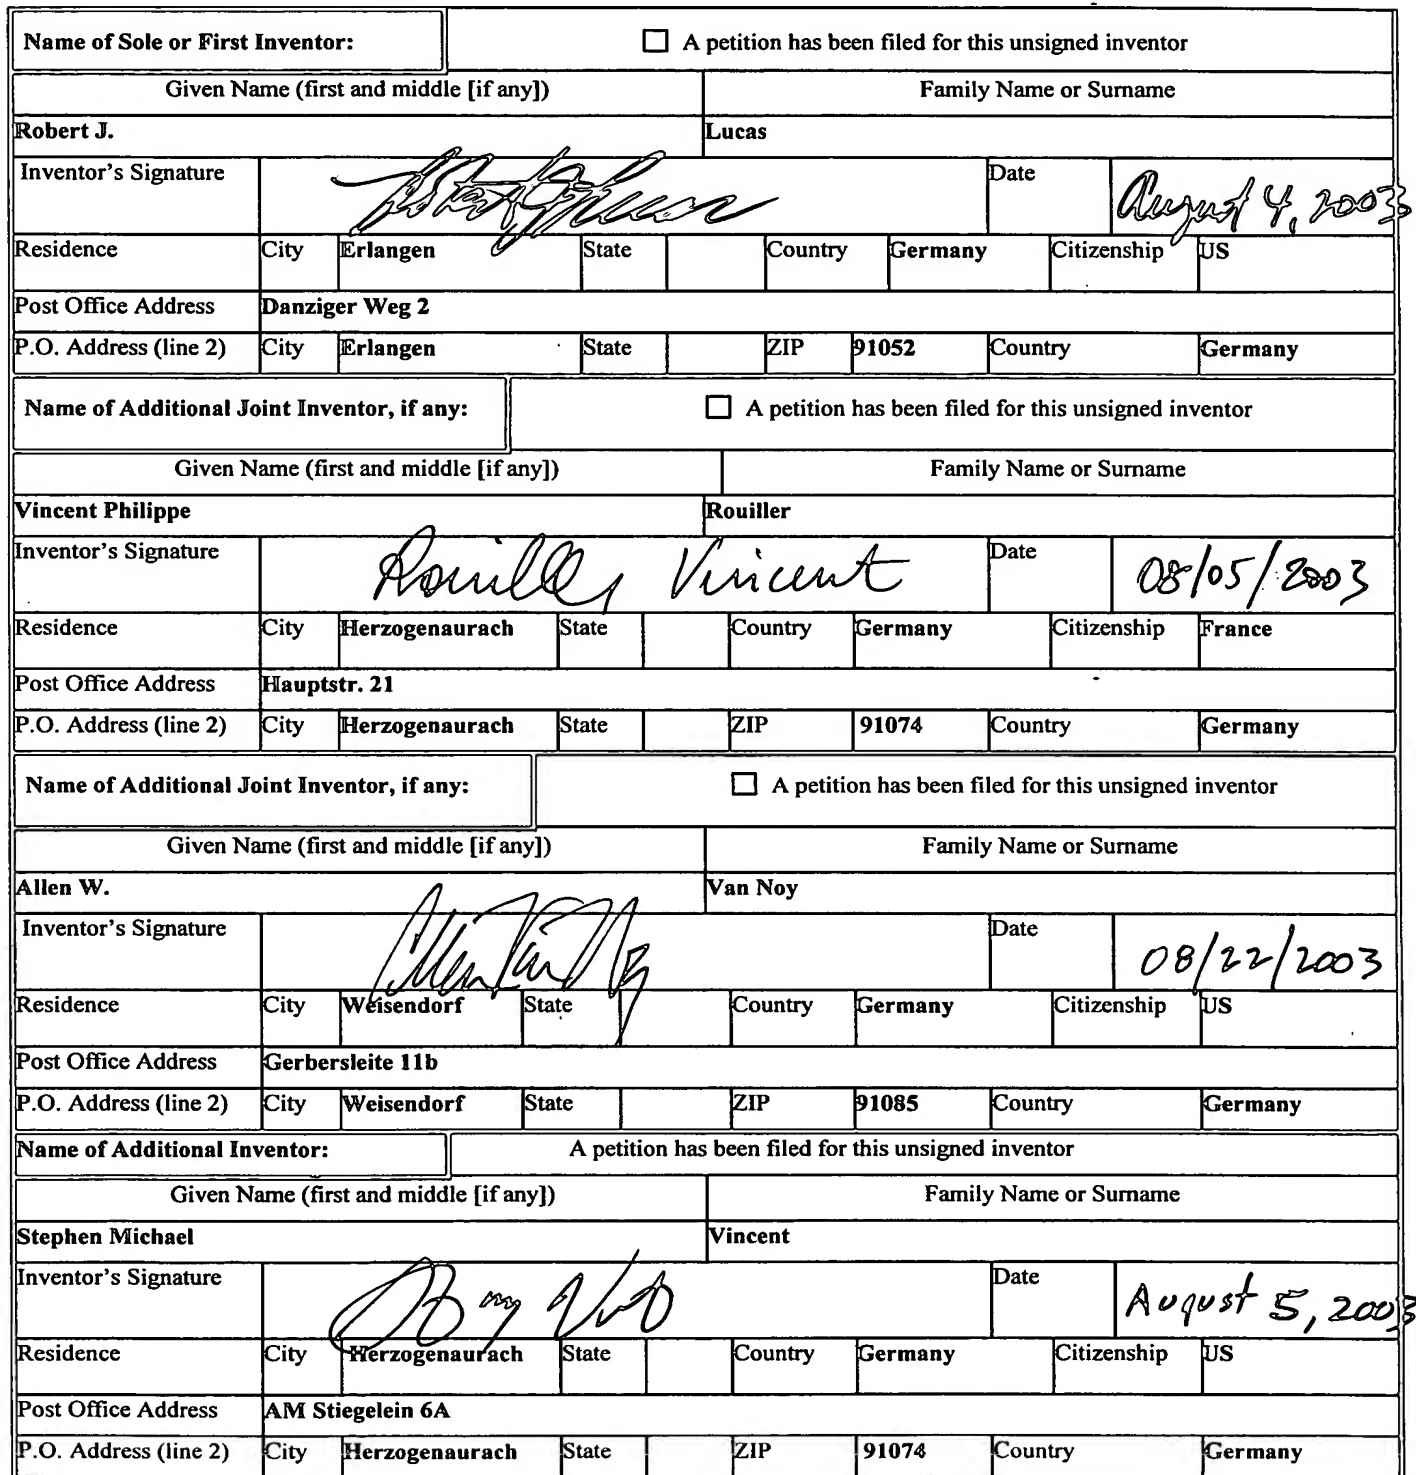 Name of Sole or First Inventor: A petition has been filed for this unsigned inventor
Given Name (first and middle [if any]) Family Name or Surname
Robert J. Lucas
Inventor's Signature Date August 4, 2003
Residence City Erlangen State Country Germany Citizenship US
Post Office Address Danziger Weg 2
P.O. Address (line 2) City Erlangen State ZIP 91052 Country Germany
Name of Additional Joint Inventor, if any: A petition has been filed for this unsigned inventor
Given Name (first and middle [if any]) Family Name or Surname
Vincent Philippe Rouiller
Inventor's Signature Rouiller Vincent Date 08/05/2003
Residence City Herzogenaurach State Country Germany Citizenship France
Post Office Address Hauptstr. 21
P.O. Address (line 2) City Herzogenaurach State ZIP 91074 Country Germany
Name of Additional Joint Inventor, if any: A petition has been filed for this unsigned inventor
Given Name (first and middle [if any]) Family Name or Surname
Allen W. Van Noy
Inventor's Signature Date 08/22/2003
Residence City Weisendorf State Country Germany Citizenship US
Post Office Address Gerbersleite 11b
P.O. Address (line 2) City Weisendorf State ZIP 91085 Country Germany
Name of Additional Inventor: A petition has been filed for this unsigned inventor
Given Name (first and middle [if any]) Family Name or Surname
Stephen Michael Vincent
Inventor's Signature Date August 5, 2003
Residence City Herzogenaurach State Country Germany Citizenship US
Post Office Address AM Stiegelein 6A
P.O. Address (line 2) City Herzogenaurach State ZIP 91074 Country Germany